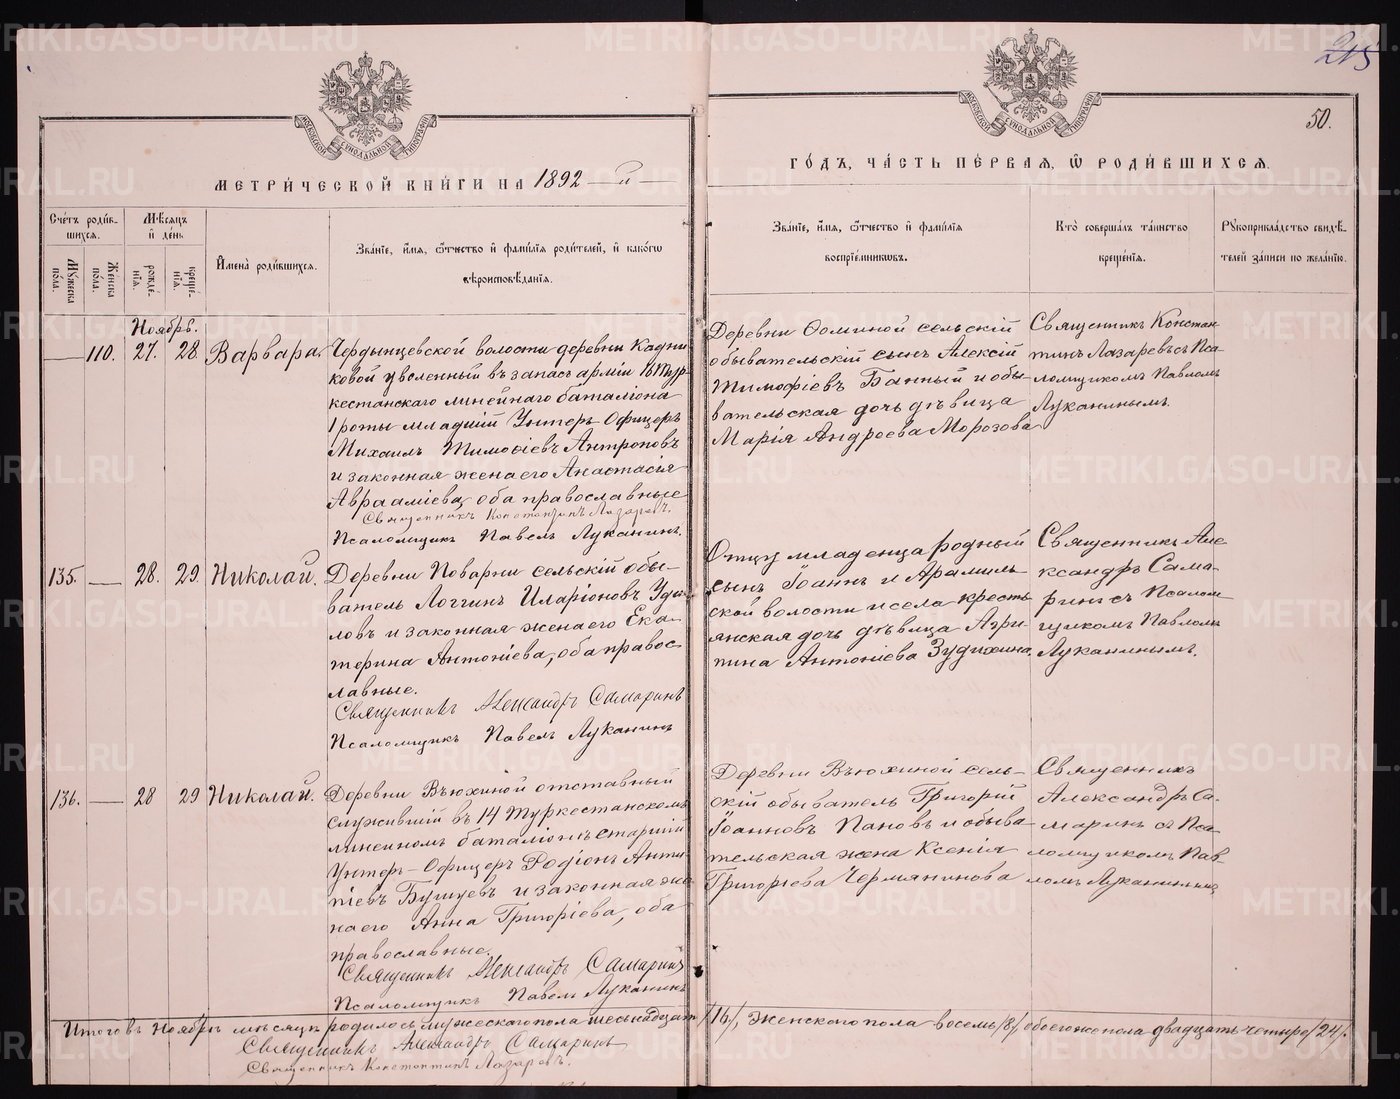 METRIKI.GASO-URAL.RU
215
50.
МОСКОВСКОЙ СѴНОДАЛЬНОЙ ТИПОГРАФІИ
МЕТРИ́ЧЕСКОЙ КНИ́ГИ НА 1892 й
ГО́ДЪ, ЧА́СТЬ ПЕ́РВАЯ, Ѡ РОДИ́ВШИХСЯ.
Сче́тъ роди́в-
шихся.
Мѣ́сяцъ
и де́нь
Му́жеска
по́ла.
Же́нска
по́ла.
рожде́-
нія.
креще́-
нія.
Имена̀ роди́вшихся.
Зва́ніе, и́мя, ѻ҆́тчество и фами́лія роди́телей, и како́гѡ
вѣроисповѣ́данія.
Зва́ніе, и́мя, ѻ҆́тчество и фами́лія
воспріе́мниковъ.
Кто̀ соверша́лъ та́инство
креще́нія.
Рꙋкоприкла́дство свидѣ́-
телей за́писи по жела́нію.
Ноябрь.
110. 27. 28 Варвара.
Чердынцевской волости деревни Кадни
ковой уволенный въ запасъ арміи 16 Тур
кестанскаго линейнаго баталіона
1 роты младшій Унтеръ Офицеръ
Михаилъ Тимоѳіевъ Антроповъ
и законная жена его Анастасія
Авраамiева, оба православные
Священникъ Константинъ Лазаревъ.
Псаломщикъ Павелъ Луканинъ.
Деревни Ѳоминой сельскій
обывательскій сынъ Алексій
Тимофіевъ Банный и обы
вательская дочь дѣвица
Марія Андроева Морозова
Священникъ Констан-
тинъ Лазаревъ съ Пса
ломщикомъ Павломъ
Луканинымъ.
135. 28. 29. Николай.
Деревни Поварни сельскій обы-
ватель Логгинъ Иларіоновъ Уди
ловъ и законная жена его Ека-
терина Антоніева, оба правос
лавные.
Священникъ Александръ Самаринъ
Псаломщикъ Павелъ Луканинъ
Отцу младенца родный
сынъ Іоаннъ и Арамиль
ской волости и села кресть
янская дочь дѣвица Агри
пина Антоніева Зудихина.
Священникъ Але-
ксандръ Сама-
ринъ съ Псалом
щикомъ Павломъ
Луканинымъ.
136. 28 29 Николай.
Деревни Вьюхиной отставный
служившій въ 14 Туркестанскомъ
линейномъ баталіонѣ старшій
Унтеръ-Офицеръ Родіонъ Анти
піевъ Бушуевъ и законная же
на его Анна Григоріева, оба
православные.
Священникъ Александръ Самаринъ
Псаломщикъ Павелъ Луканинъ
Деревни Вьюхиной сель-
скій обыватель Григорій
Іоанновъ Пановъ и обыва
тельская жена Ксенія
Григорьева Чермянинова
Священникъ
Александръ Са-
маринъ съ Пса
ломщикомъ Пав-
ломъ Луканинымъ
Итого въ Ноябрѣ мѣсяцѣ родилось мужескаго пола шеснадцать /16/, женскаго пола восемь /8/ обоего же пола двадцать четыре /24/.
Священникъ Александръ Самаринъ
Священникъ Константинъ Лазаревъ.